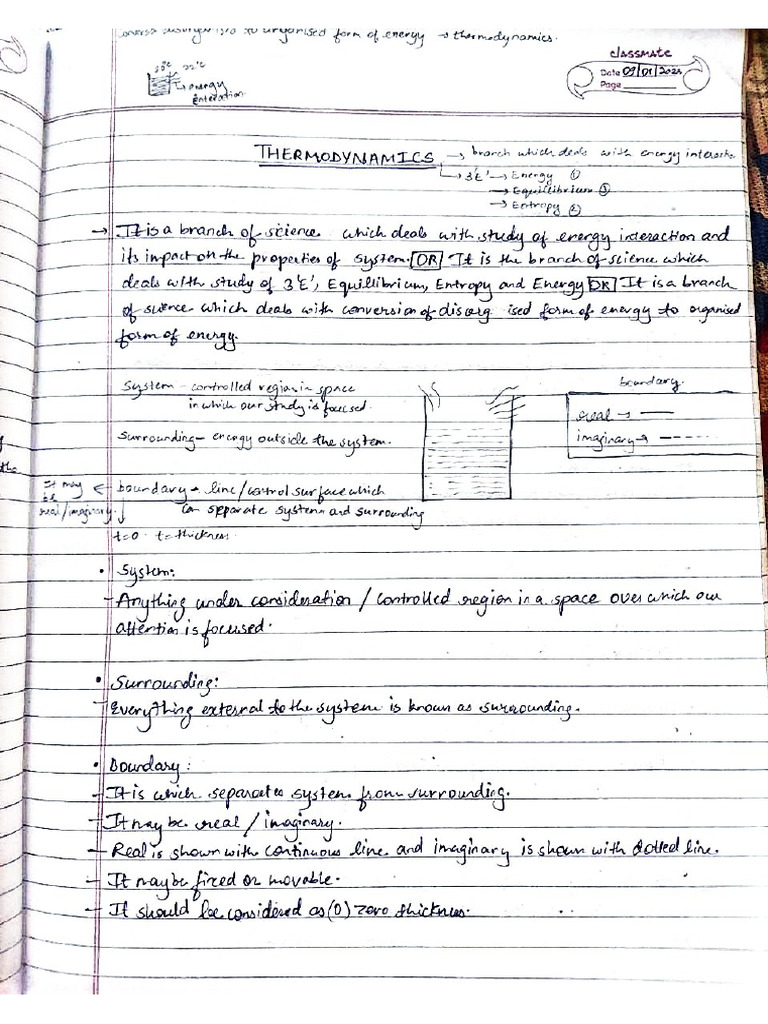 to organised form of energy → thermodynamics.
classmate
Date 09/01/2024
Page
energy
interaction
THERMODYNAMICS → branch which deals with energy interact
→ 3'E' → Energy ①
→ Equilibrium ③
→ Entropy ②
→ It is a branch of science which deals with study of energy interaction and
its impact on the properties of system. OR It is the branch of science which
deals with study of 3'E', Equillibrium, Entropy and Energy OR It is a branch
of science which deals with conversion of disorg ised form of energy to organised
form of energy.
System - controlled region in space
in which our study is focused.
boundary.
real → —
imaginary → -----
Surrounding - energy outside the system.
It may be real/imaginary. ← boundary → line/control surface which
can separate system and surrounding
t=0 t=thickness
• System:
- Anything under consideration / controlled region in a space over which our
attention is focused.
• Surrounding:
- Everything external to the system is known as surrounding.
• Boundary:
- It is which separates system from surrounding.
- It may be real / imaginary.
- Real is shown with continuous line and imaginary is shown with dotted line.
- It may be fixed or movable.
- It should be considered as (0) zero thickness.